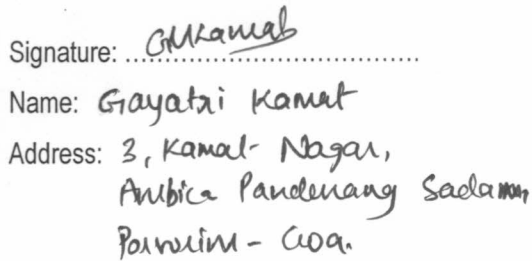 Signature: GMKamat
Name: Gayatri Kamat
Address: 3, Kamal- Nagar,
Ambica Pandurang Sadanan,
Porvorim - Goa.